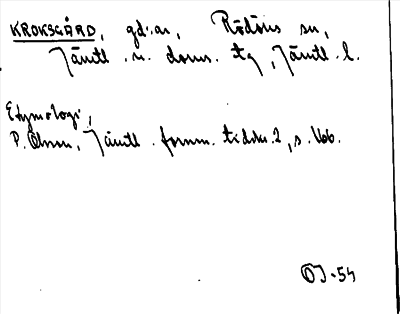 KROKSGÅRD, gd:ar, Rödöns sn,
Jämtl. n. doms. tg, Jämtl. l.
Etymologi,
P. Olsson, Jämtl. fornm. tidskr. 2, s. 166.
OJ-54